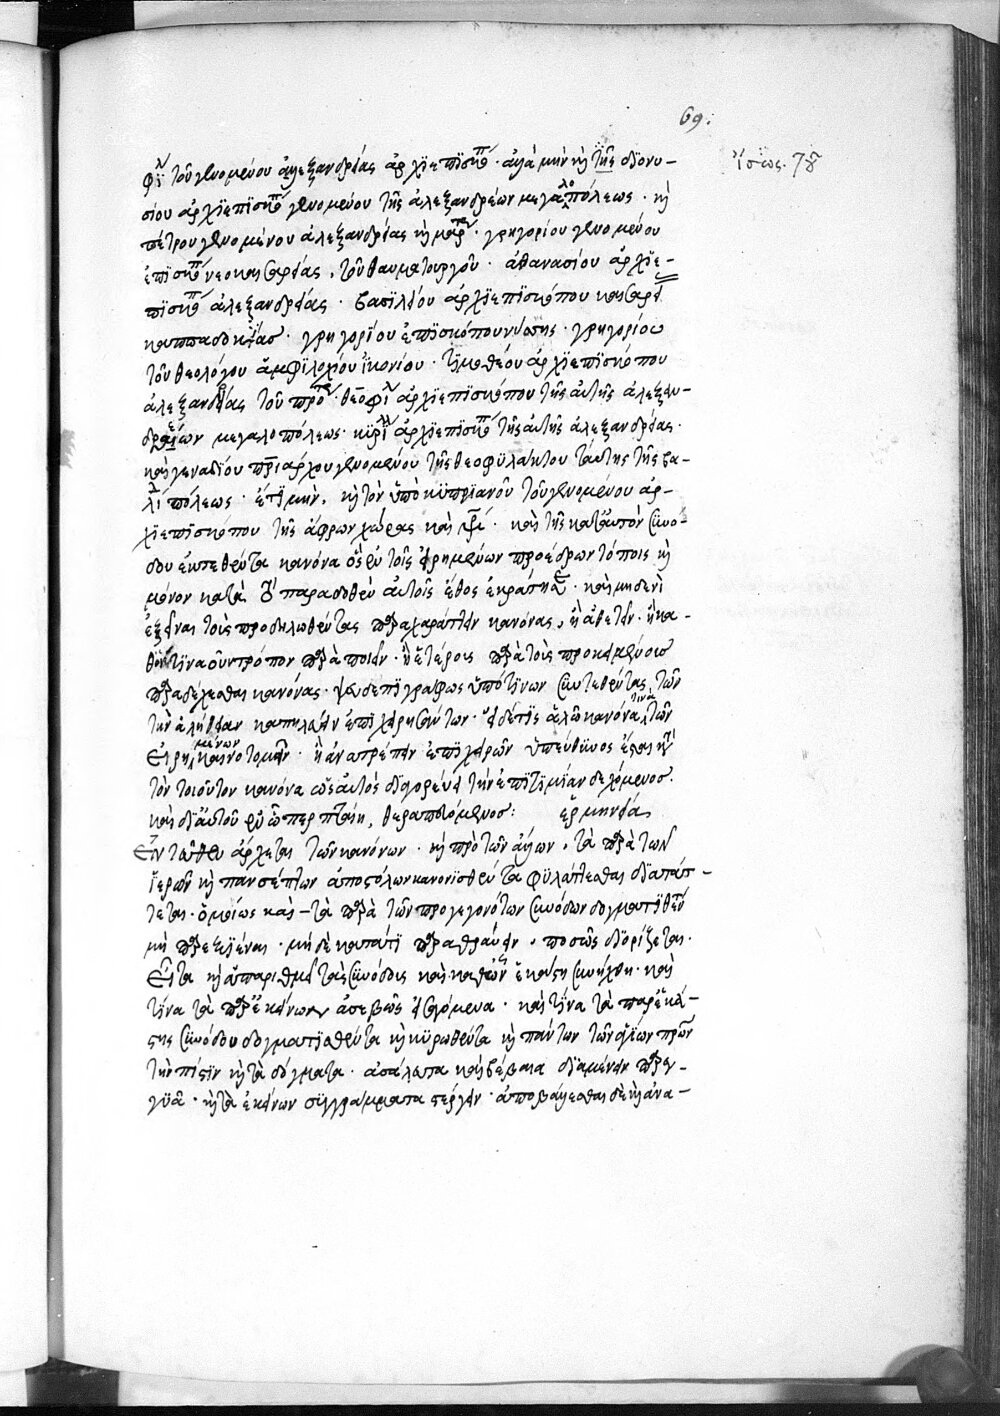 69.
φι τοῦ γενομένου ἀλεξανδρείας ἀρχιεπισκο · ἀλλὰ μὴν καὶ τῆς διονυ-
ἴσως.
σίου ἀρχιεπισκο γενομένου τῆς ἀλεξανδρέων μεγαλοπόλεως · καὶ
πέτρου γενομένου ἀλεξανδρείας καὶ μαρ · γρηγορίου γενομένου
ἐπισκο νεοκαισαρείας, τοῦ θαυματουργοῦ · ἀθανασίου ἀρχιε-
πισκο ἀλεξανδρείας · βασιλείου ἀρχιεπισκόπου καισαρεί
καππαδοκίας · γρηγορίου ἐπισκόπου νύσης · γρηγορίου
τοῦ θεολόγου ἀμφιλοχίου ἰκονίου · τιμοθέου ἀρχιεπισκόπου
ἀλεξανδρείας τοῦ προτε · θεοφι ἀρχιεπισκόπου τῆς αὐτῆς ἀλεξαν-
δρέων μεγαλοπόλεως · κυρι ἀρχιεπισκο τῆς αὐτῆς ἀλεξανδρείας ·
καὶ γεναδίου πριάρχου γενομένου τῆς θεοφυλάκτου ταύτης τῆς βα-
λι πόλεως · ἔτι μὴν, καὶ τὸν ὑπὸ κυπριανοῦ τοῦ γενομένου ἀρ-
χιεπισκόπου τῆς ἄφρων χώρας καὶ · καὶ τῆς κατ' αὐτὸν συνό-
δου ἐκτεθέντα κανόνα ὃς ἐν τοῖς εἰρημένων προέδρων τόποις καὶ
μόνον κατὰ τὸ παραδοθὲν αὐτοῖς ἔθος ἐκράτησε · καὶ μηδενὶ
ἐξεῖναι τοῖς προδηλωθέντας παραχαράττειν κανόνας, ἢ ἀθετεῖν · ἢ κα-
θ' ὅντινα οὖν τρόπον παρατοπιεῖν · ἢ ἑτέροις παρὰ τοῖς προκειμένοις
παραδέχεσθαι κανόνας · ψευδεπιγράφως ὑπό τινων συντεθέντας τῶν
τὴν ἀλήθειαν καπηλεύειν ἐπιχειρησάντων · εἰ δέ τις ἁλῶ κανόνα τινὰ τῶν
εἰρημένων καινοτομεῖν · ἢ ἀνατρέπειν ἐπιχειρῶν ὑπεύθυνος ἔσται κατὰ
τὸν τοιοῦτον κανόνα ὡς αὐτὸς διαγορεύει τὴν ἐπιτιμίαν δεχόμενος ·
καὶ δι' αὐτοῦ ἐν ὧπερ πταίη, θεραπευόμενος : ἑρμηνεία
Ἐντεῦθεν ἄρχεται τῶν κανόνων · καὶ πρὸ τῶν ἄλλων, τὰ παρὰ τῶν
ἱερῶν καὶ πανσέπτων ἀποστόλων κανονισθέντα φυλάττεσθαι διατάτ-
τεται · ὁμοίως καὶ τὰ παρὰ τῶν προγεγονότων συνόδων δογματισθέν
μὴ παρεκκλίναι · μηδὲ κατάτι παραθραύειν · ποσῶς διορίζεται ·
Εἶτα καὶ ἀπαριθμεῖ τὰς συνόδους καὶ καθ' ὧν ἑκάστη συνήχθη · καὶ
τίνα τὰ παρ' ἐκείνων ἀσεβῶς εἰσαγόμενα · καὶ τίνα τὰ παρ' ἑκά-
στης συνόδου δογματισθέντα καὶ κυρωθέντα καὶ πάντων τῶν ἁγίων πρων
τὴν πίστιν καὶ τὰ δόγματα · ἀσάλευτα καὶ βέβαια διαμένειν παρεγ-
γυᾶ · καὶ τὰ ἐκείνων συγγράμματα στέργειν · ἀποβάλλεσθαι δὲ καὶ ἀνα-